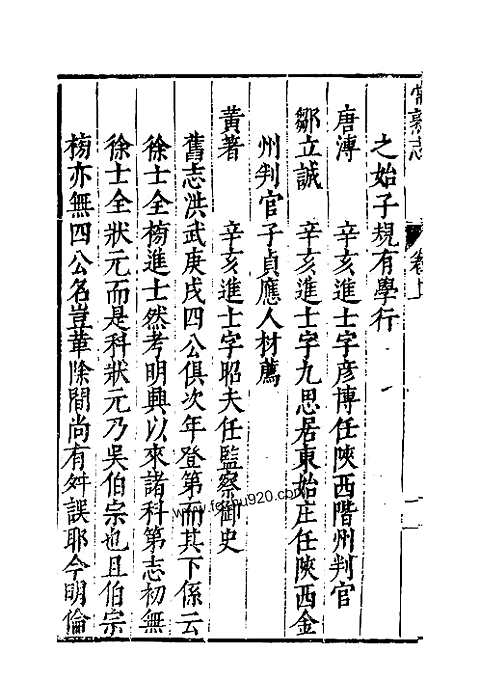 常熟志 卷上
之始子規有學行
唐溥 辛亥進士字彥博任陝西階州判官
鄒立誠 辛亥進士字九思居東始庄任陝西金
州判官子貞應人材薦
黃著 辛亥進士字昭夫任監察御史
舊志洪武庚戌四公俱次年登第而其下係云
徐士全榜進士然考明興以來諸科第志初無
徐士全狀元而是科狀元乃吳伯宗也且伯宗
榜亦無四公名豈革除間尚有舛誤耶今明倫
www.fengshu920.com